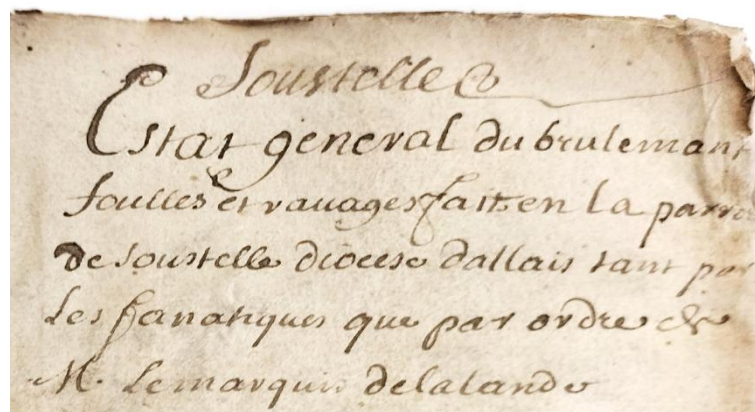 Soustelle
Estat general du brulemant
foulles et rauages fait en la parro
de soustelle diocese dallais tant par
Les fanatiques que par ordre de
M. Lemarquis delalande